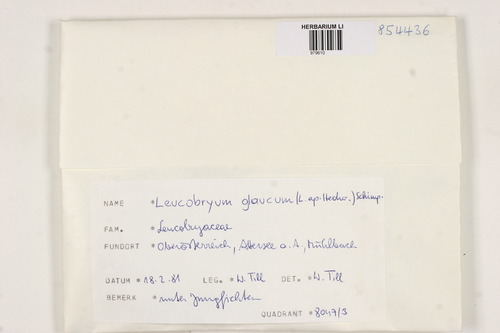 HERBARIUM LI
979610
854436
NAME *Leucobryum glaucum (L. ap. Hedw.) Schimp.
FAM. *Leucobryaceae
FUNDORT *Oberösterreich, Attersee a. A., Mühlbach
DATUM *18.2.81 LEG. *W. Till DET. *W. Till
BEMERK *unter Jungfichten
QUADRANT *8047/3